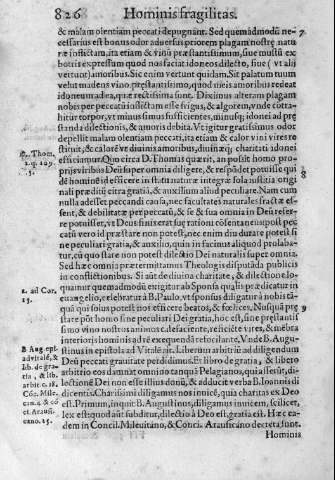 826 Hominis fragilitas.
& malam olentiam peccati depugnant. Sed quemadmodū ne-
cessarius est bonus odor aduersus procem plagam nostrę natu-
ræ insictam, ita etiam & vinū præstantissimum, siue mustū ex
botri expressum quod nos faciat idoneos dilecto, siue ( vt alij
vertunt) amoribus. Sic enim vertunt quidam. Sit palatum tuum
velut madens vino præstantissimo, quod meis amoribus redeat
idoneum
adeo, quæ rectissima sunt. Diximus alteram plagam
nobis per peccatū inflictam esse frigus, & algorem, vnde cotra-
hitur torpor, vt minus simus sufficientes, minusq; idonei ad præ
standa dilectionis, & amoris debita. Vt igitur gratissimus odor
depellit malam olentiam peccati, ita etiam & calor vini vitet re
stituit, & calore vt diuinis amoribus, diuinæq; charitati idonei
efficiamur. Quo circa D. Thomas quærit, an possit homo pro-
prijs viribus Deū super omnia diligere, & respōdet potuisse qui
dē hominē id efficere in statu naturæ integræ sola iustitia origi-
nali præditū citra gratiā, & auxilium aliud peculiare. Nam cum
nulla adesset peccandi causa, nec facultates naturales fractæ es-
sent, & debilitatæ per peccatū, & se & sua omnia in Deū refer-
re potuisset, vt Deus finis erat suę rationi cōsentaneus post pec
catū vero id præstare non potest, nec enim diu durare potest si
ne peculiari gratia, & auxilio, quin in facinus aliquod prolaba-
tur, cū quo stare non potest dilectio Dei naturalis super omnia.
Sed hæc omnia prætermittamus Theologis disputāda publicis
in conflictionibus. Si aūt de diuina charitate, & dilectione lo-
quamur quemadmodū exigitur ab Sponsa qualis prædicatur in
euangelio, celebratur à B. Paulo, vt sponsus diligatur à nobis tā
quā qui solus potest nos efficere beatos, & fœlices. Nusquā pre
stare pōt homo sine peculiari Dei gratia, hoc est, sine prestantis
simo vino nostros animus calefaciente, reficiēte vires, & mēbra
interiors hominis ad rē exequendā refocilante. Vnde B. Augu-
stinus in epistola ad Vitalē ait. Liberum arbitriū ad diligendum
Deū peccati grauitate perdidimus. Et libro de gratia, & libero
arbitrio eos damnat omnino tanquā Pelagianos, qui asserūt, di-
lectionē Dei non esse illius donū, & adducit verba B. Ioannis di
dicentis. Charissimi diligamus nos inuicē, quia charitas ex Deo
est. Primum, inquit B. Augustinus, diligamus inuicem, scilicet,
lex est quod aūt subditur, dilectio à Deo est, gratia est. Hæc ea-
dem in Concil. Mileuitano, & Concil. Arausicano decreta sunt.
Hominis
7
D. Thom.
1. q. 109.
8
1. ad Cor.
9
B Aug epi.
ad vitalē, &
lib. de gra-
tia, & lib.
arbit c. 18.